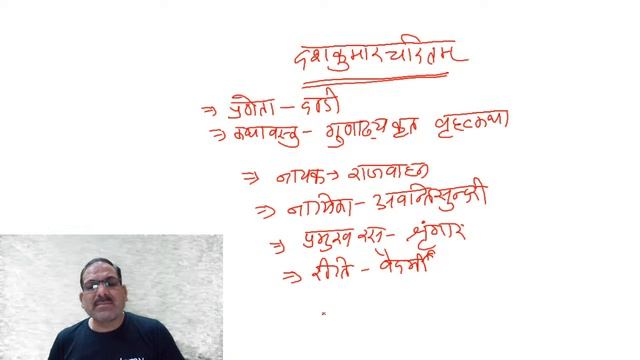 दशकुमारचरितम
⇒ प्रणेता – दण्डी
⇒ कथावस्तु – गुणाढ्य कृत वृहत्कथा
⇒ नायक → राजवाहन
⇒ नायिका – अवन्तिसुन्दरी
⇒ प्रमुख रस – श्रृंगार
⇒ रीति – वैदर्भी